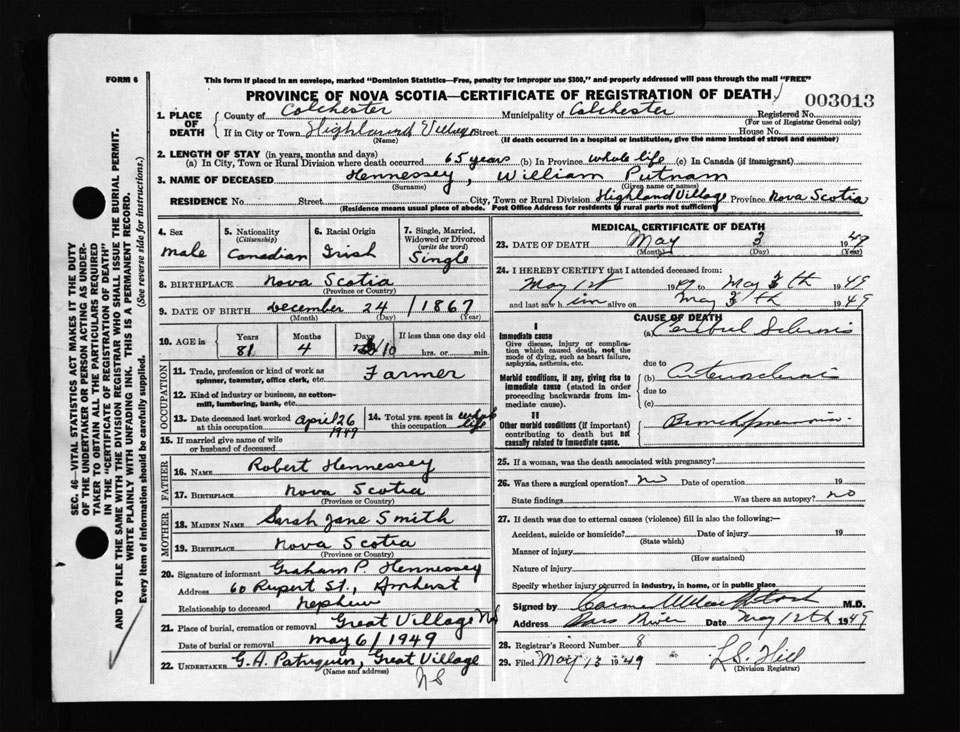 FORM 6
This form if placed in an envelope, marked "Dominion Statistics—Free, penalty for improper use $300," and properly addressed will pass through the mail "FREE"
PROVINCE OF NOVA SCOTIA—CERTIFICATE OF REGISTRATION OF DEATH
003013
1. PLACE OF DEATH
County of Colchester Municipality of Colchester Registered No.
(For use of Registrar General only)
If in City or Town Highland Village Street House No.
(Name) (If death occurred in a hospital or institution, give the name instead of street and number)
2. LENGTH OF STAY (in years, months and days)
(a) In City, Town or Rural Division where death occurred 65 years (b) In Province whole life (c) In Canada (if immigrant)
3. NAME OF DECEASED Hennessey, William Putnam
(Surname) (Given name or names)
RESIDENCE No. Street City, Town or Rural Division Highland Village Province Nova Scotia
(Residence means usual place of abode. Post Office Address for residents in rural parts not sufficient)
4. Sex
male
5. Nationality
(Citizenship)
Canadian
6. Racial Origin
Irish
7. Single, Married, Widowed or Divorced
(write the word)
Single
8. BIRTHPLACE Nova Scotia
(Province or Country)
9. DATE OF BIRTH December 24 / 1867
(Month) (Day) (Year)
10. AGE in
Years Months Days If less than one day old
81 4 10 hrs. or min.
OCCUPATION
11. Trade, profession or kind of work as spinner, teamster, office clerk, etc. Farmer
12. Kind of industry or business, as cotton-mill, lumbering, bank, etc.
13. Date deceased last worked at this occupation April 26 1949
14. Total yrs. spent in this occupation whole life
15. If married give name of wife or husband of deceased
FATHER
16. NAME Robert Hennessey
17. BIRTHPLACE Nova Scotia
(Province or Country)
MOTHER
18. MAIDEN NAME Sarah Jane Smith
19. BIRTHPLACE Nova Scotia
(Province or Country)
20. Signature of informant Graham P. Hennessey
Address 60 Rupert St., Amherst
Relationship to deceased nephew
21. Place of burial, cremation or removal Great Village NS
Date of burial or removal may 6 / 1949
22. UNDERTAKER G. A. Patriquin, Great Village
(Name and address)
NS
MEDICAL CERTIFICATE OF DEATH
23. DATE OF DEATH May 3 1949
(Month) (Day) (Year)
24. I HEREBY CERTIFY that I attended deceased from:
May 1st 1949 to May 3th 1949
and last saw him alive on May 3th 1949
CAUSE OF DEATH
I
Immediate cause
Give disease, injury or complication which caused death, not the mode of dying, such as heart failure, asphyxia, asthenia, etc.
(a)
due to
Morbid conditions, if any, giving rise to immediate cause (stated in order proceeding backwards from immediate cause).
(b)
due to
(c)
II
Other morbid conditions (if important) contributing to death but not causally related to immediate cause.
Bronchopneumonia
25. If a woman, was the death associated with pregnancy?
26. Was there a surgical operation? no Date of operation 19
State findings Was there an autopsy? no
27. If death was due to external causes (violence) fill in also the following:—
Accident, suicide or homicide? Date of injury 19
(State which)
Manner of injury
(How sustained)
Nature of injury
Specify whether injury occurred in industry, in home, or in public place
Signed by M.D.
Address Bass River Date May 12th 1949
28. Registrar's Record Number 8
29. Filed May 13 1949 L. S. Hill
(Division Registrar)
SEC. 46—VITAL STATISTICS ACT MAKES IT THE DUTY OF THE UNDERTAKER OR PERSON ACTING AS UNDERTAKER TO OBTAIN ALL THE PARTICULARS REQUIRED IN THE "CERTIFICATE OF REGISTRATION OF DEATH" AND TO FILE THE SAME WITH THE DIVISION REGISTRAR WHO SHALL ISSUE THE BURIAL PERMIT.
WRITE PLAINLY WITH UNFADING INK. THIS IS A PERMANENT RECORD.
Every item of information should be carefully supplied. (See reverse side for instructions.)